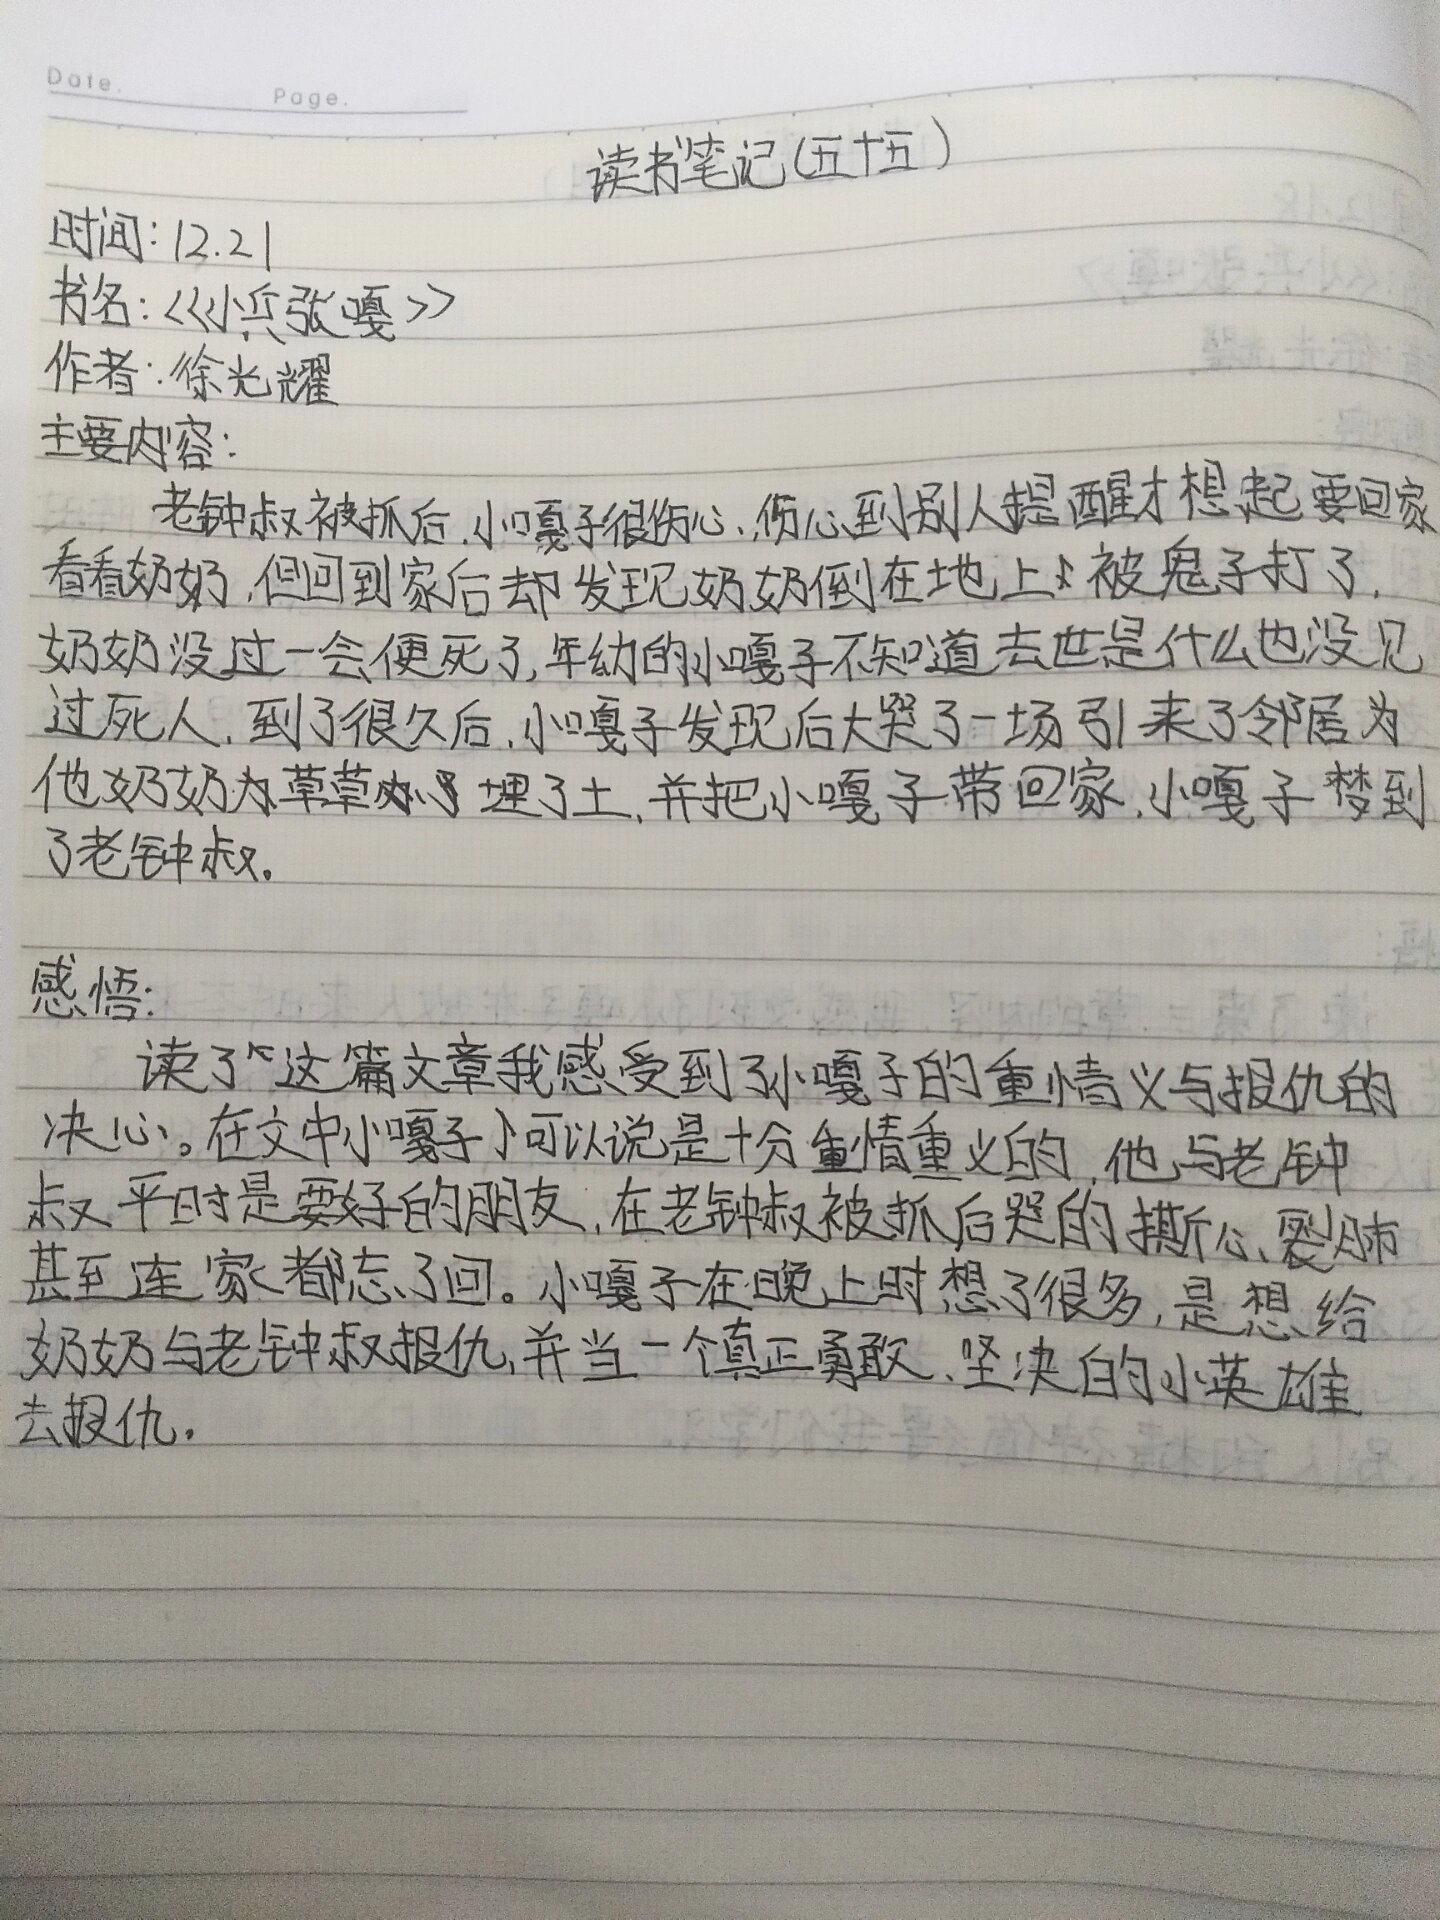 Date.
Page.
读书笔记(五十五)
时间:12.21
书名:<<小兵张嘎>>
作者:徐光耀
主要内容:
老钟叔被抓后,小嘎子很伤心,伤心到别人提醒才想起要回家
看看奶奶,但回到家后却发现奶奶倒在地上被鬼子打了,
奶奶没过一会便死了,年幼的小嘎子不知道去世是什么也没见
过死人,到了很久后,小嘎子发现后大哭了一场引来了邻居为
他奶奶草草埋了土,并把小嘎子带回家,小嘎子梦到
了老钟叔。
感悟:
读了这篇文章我感受到了小嘎子的重情义与报仇的
决心。在文中小嘎子可以说是十分重情重义的,他与老钟
叔平时是要好的朋友,在老钟叔被抓后哭的撕心裂肺
甚至连家都忘了回。小嘎子在晚上时想了很多,是想给
奶奶与老钟叔报仇,并当一个真正勇敢、坚决的小英雄
去报仇.